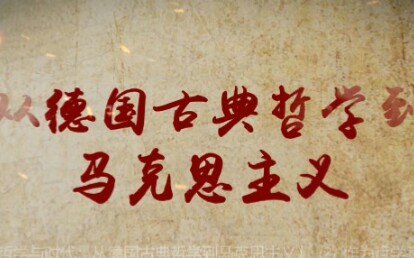 从德国古典哲学到
马克思主义